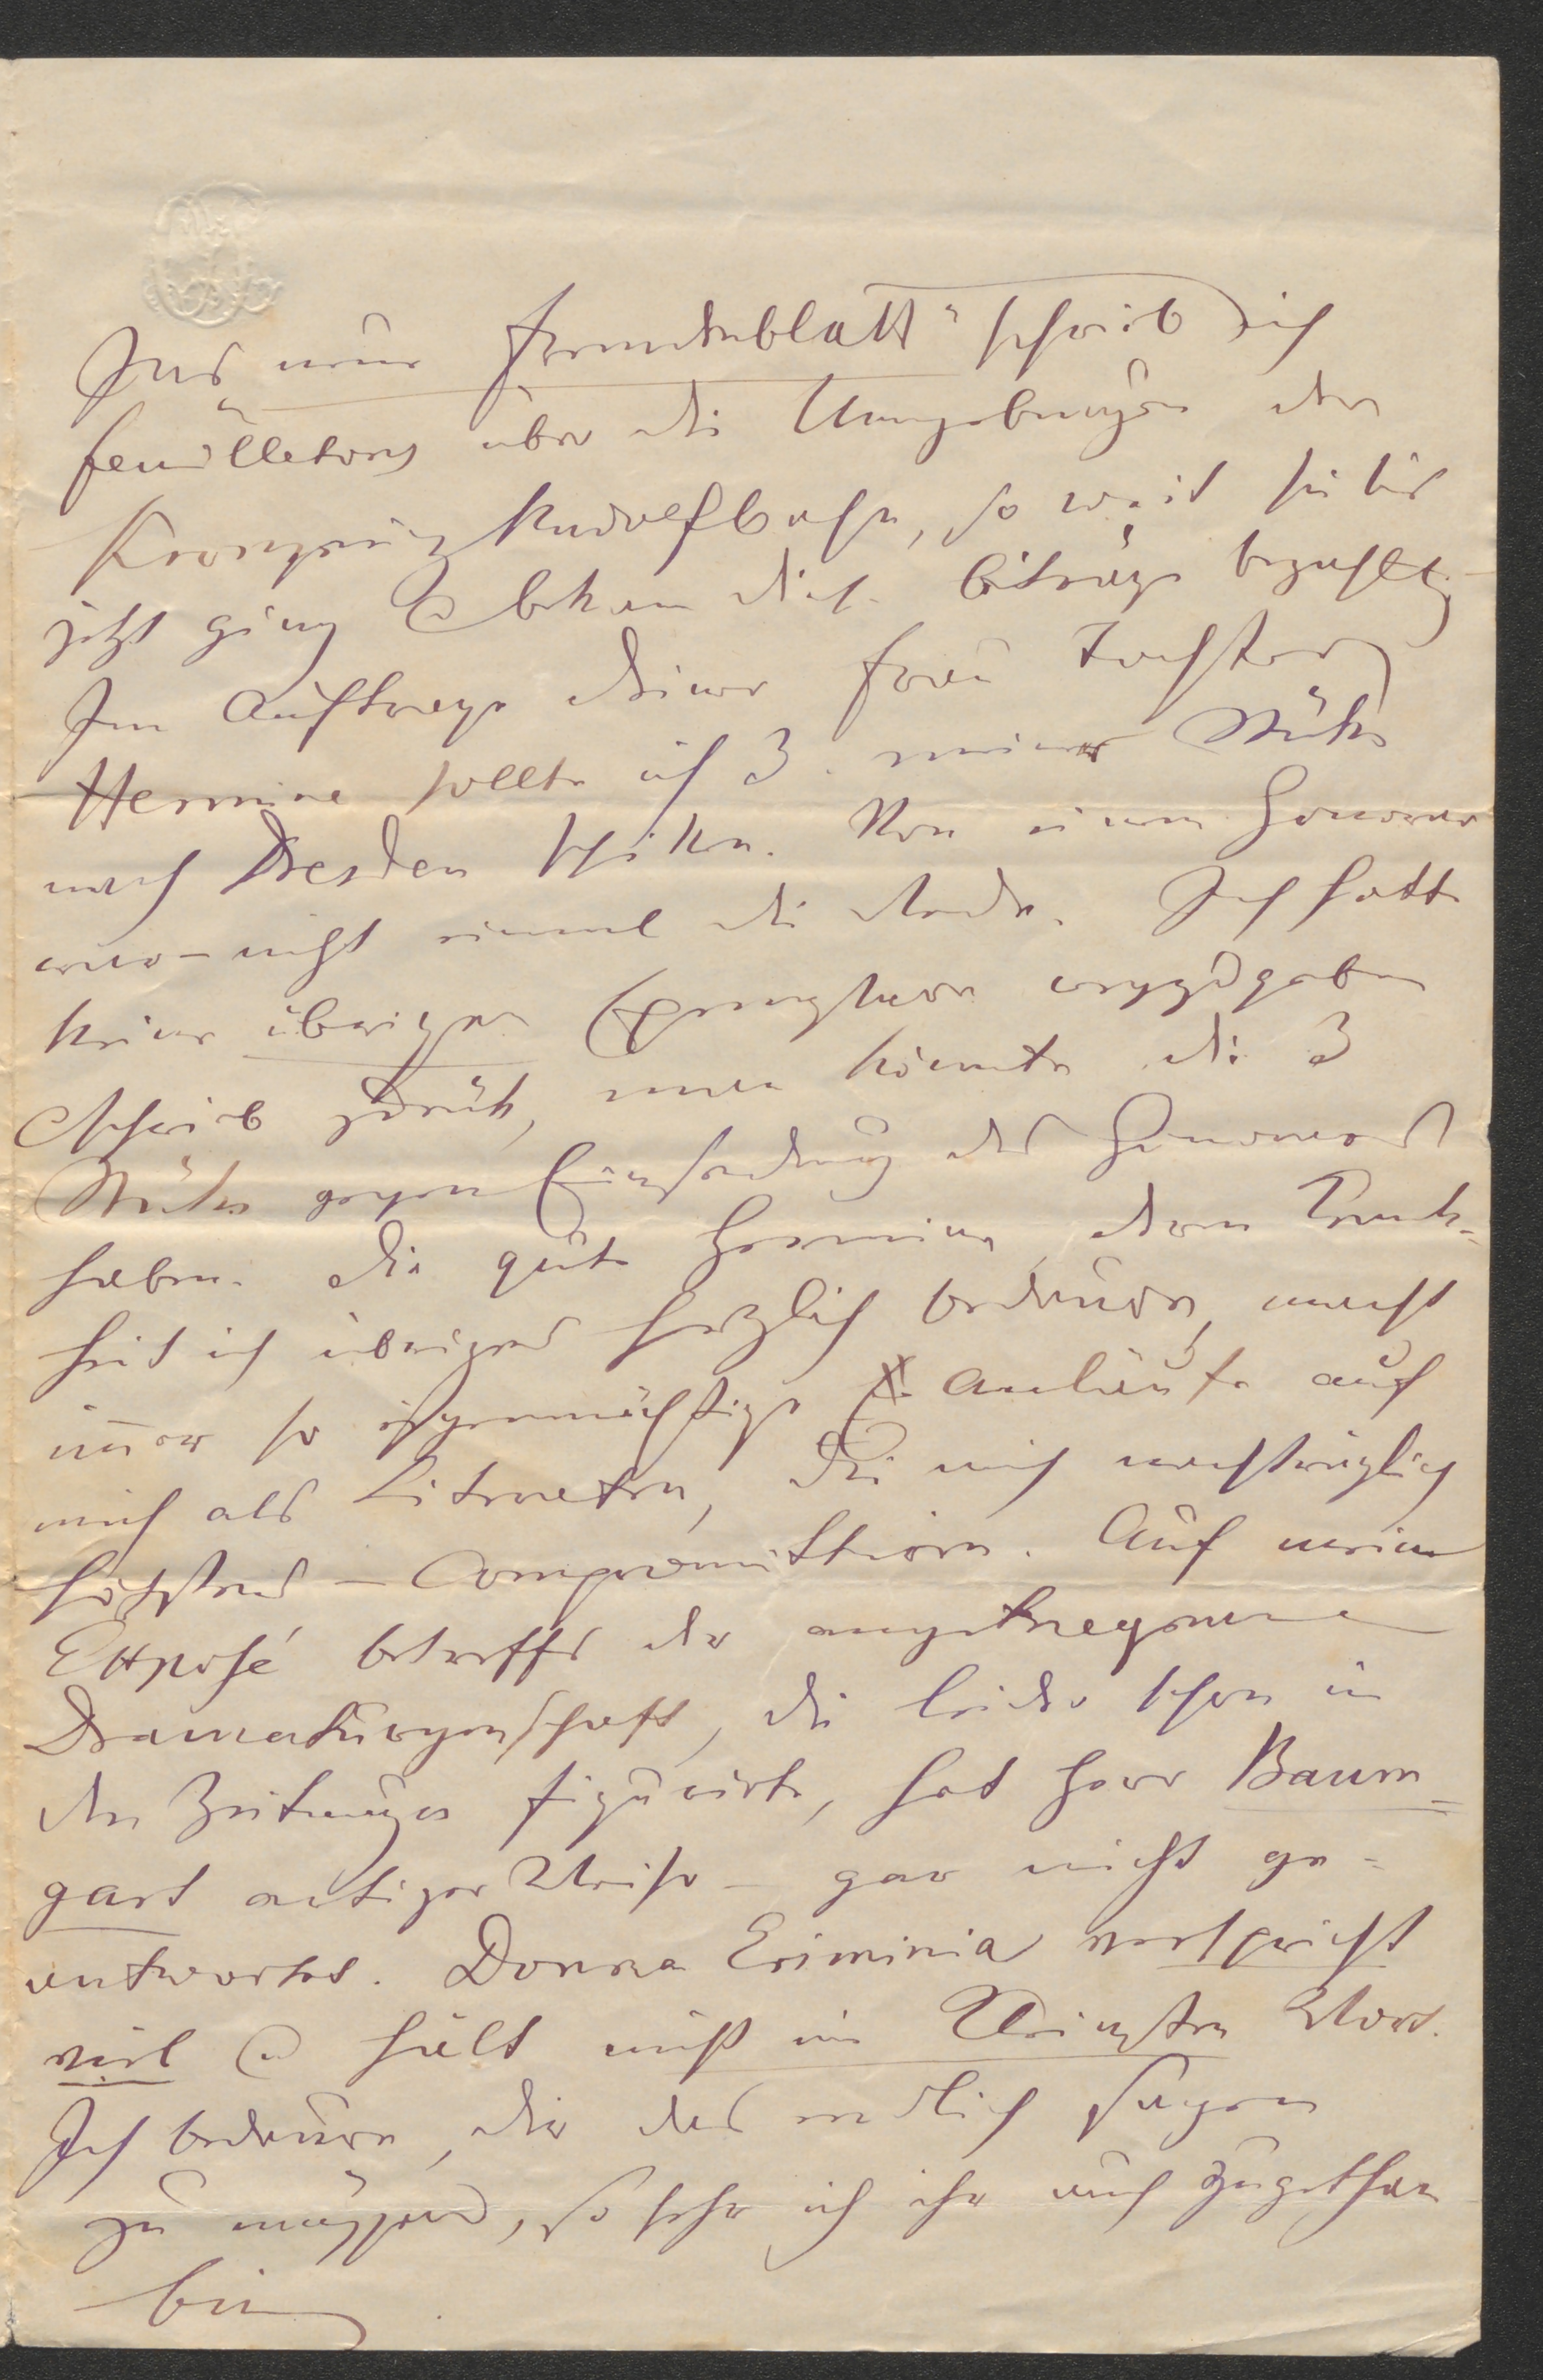 Ins „neue Fremdenblatt“ schrieb ich
Feuilletons über die Umgebungen der
Kronprinz Rudolfbahn, so weit sie bis
jetzt ging & bekam diese Beiträge bezahlt,
Im Auftrage deiner Frau Tochter
Hermine sollte ich 3 meiner Stücke
nach Dresden schicken. Von einem Honorar
war – nicht einmal die Rede. Ich hatte
keine übrigen Exemplare
& schrieb zurück, man könnte die 3
Stücke gegen Einsendung des Honorars
haben. Die gute Hermine, deren Krank-
heit ich übrigens herzlich bedaure, macht
immer so Anläufe auf
mich als Literaten, die mich nachträglich
höchstens – compromittiren. Auf meine
Exposé betreffs der angetragenen
Dramaturgenschaft, die leider schon in
den Zeitungen figurirte, hat Herr Baum=
gart artiger Weise – gar nicht ge=
antwortet. Donna Eriminia verspricht
viel & hält nicht im Kleinsten Wort.
Ich bedaure, dir das endlich sagen
zu müssen, so sehr ich ihr auch zugethan
bin